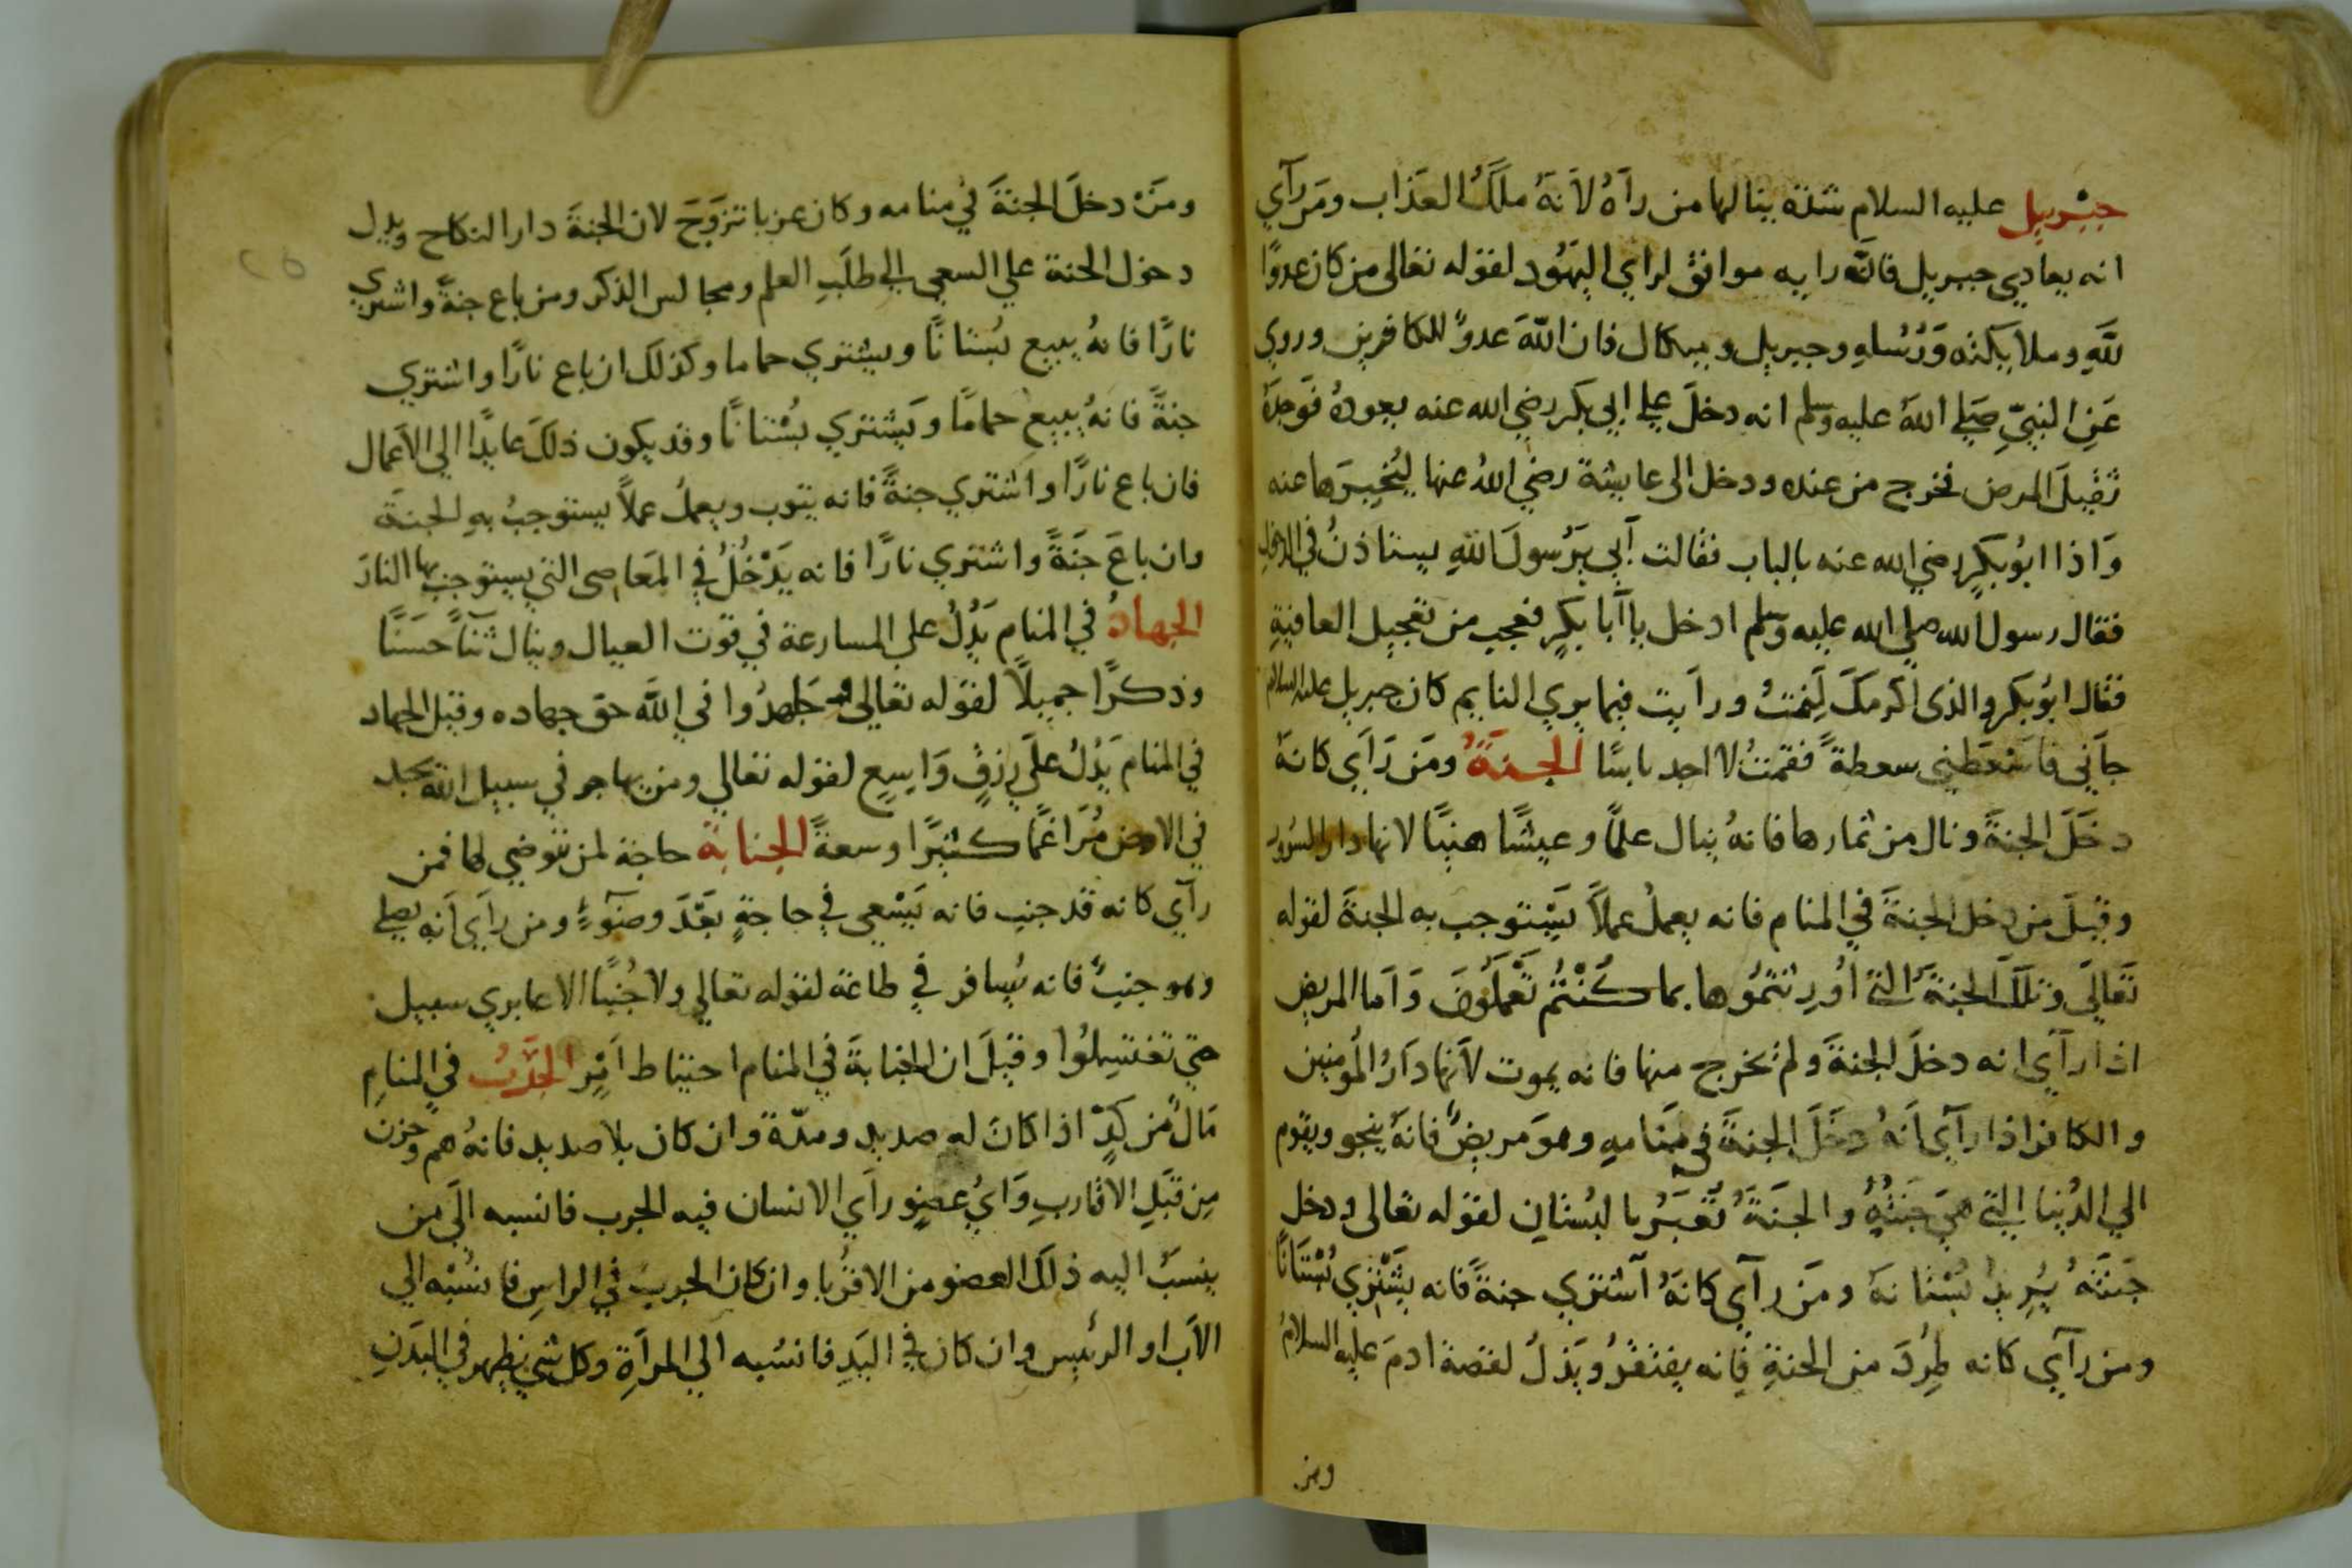 جبْريل عليه السلام شدة ينالها من رآهُ لاَنهُ ملَكُ العَذاب ومَن رآي
انه يعادي جبريل فانَّه رايه موافق لراي اليَهُود لقوله تعالى من كان عدوًا
للَّهِ وملايكته وَرُسُلهِ وجبريل وميكال فان اللّهَ عدوٌ للكافرين وروي
عَنِ النبيّ صَلي اللهُ عليه وسلم انه دخلَ علي ابي بكر رضي الله عنه يعودهُ فوَجدَهُ
ثقيلَ المرض فخرج من عنده ودخل الى عايشة رضي اللهُ عنها ليُخبِرَها عنه
وَاذا ابُو بكرٍ رضي الله عنه بالباب فقالت أبي يَرَسولَ اللهِ يستاذنُ في الدخول
فقال رسول الله صلي الله عليه وسلم ادخل يا اَبا بكرٍ فعجب من تعجيل العافيةِ
فقال ابُو بكر والذى اكرمكَ لَنمتُ ورأيت فيما يري النايم كان جبريل عليه السلام
جاَنى فاَسْعَطني سعطةً فقمتُ لا اجد باسًا الجنَةُ ومَن رَاَي كانهَ
دخَلَ الجنةَ ونال من ثمارها فانهُ ينال علمًا وعيشًا هنيًا لانها دار السُرور
وقيلَ من دخل الجنةَ في المنام فانه يعملُ عملاً يَسْتوجب به الجنةَ لقوله
تَعَاليَ وتلكَ الجنةُ التي اُورِثتمُوها بما كُنْتُم تَعْمَلُونَ وَاَما المريض
اذا رآي انه دخلَ الجنةَ ولم يخرج منها فانه يموت لاَنها دَارُ المؤمنين
والكافر اذا رآي اَنهُ دخَلَ الجنةَ في مَنامهِ وهوَ مريضٌ فانهَ ينجو ويقوم
الي الدُنيا التي هيَ جَنتُهُ والجنَةُ تُعَبَرُ بالبُستانِ لقوله تعالى ودخل
جَنتَهُ يُرِيدُ بُسْتانهَ ومَن رآي كانَهُ آشتري جنةً فانه يشَتري بُسْتَانًا
ومن رآي كانه طُرِدَ من الجنةِ فِانه يفتقرُ ويَذلُ لقصة ادمَ عليه السلامُ
ومن
ومَنْ دخلَ الجنةَ في منامه وكان عزبا تزوَّجَ لان الجنةَ دار النكاح ويدل
دخول الجنة علي السعي الي طلَبِ العلم ومجالس الذكر ومن باع جنةً واشتري
نارًا فانهُ يبيع بُستانًا ويشتري حماما وكذلك ان باع نارًا واشتري
جنةً فانهُ يبيع حمامًا ويَشتري بُسْتانًا وقد يكون ذلكَ عايدًا الي الاَعمال
فان باع نارًا واشتري جنةً فانه يتوب ويعملُ عملاً يستوجبُ بهِ الجنةَ
وان باعَ جَنَةً واشتري نارًا فانه يَدْخُلُ في المَعاصي التي يستوجب بها النارَ
الجهادُ في المنام يَدُلُ علي المسارعة في قوت العيال وينال ثناً حسَنًا
وذكرًا جميلاً لقوله تعالي وجَاهدُوا في اللَّه حق جهاده وقيل الجهاد
في المنام يَدُلُ علَي رِزقٍ وَاسِعٍ لقوله تعالي ومن يهاجر في سبيل اللَّه يجد
في الارض مُرَاغمًا كثيرًا وسعةً الجنابة حاجة لمن تتوضي لها فمن
رآي كانه قد جنب فانه يَسْعي في حاجةٍ بعَدَ وضوَءٍ ومن رآي اَنه يصلي
وهو جنبٌ فانه يُسافر في طاعة لقوله تعالي ولا جُنبًا الا عابري سبيل
حتي تغتسِلُوا وقيلَ ان الجنابةَ في المنام احتياط اَمْرٍ الجَرَبُ في المنامِ
مَالُ من كدٍ اذا كانَ له صديد ومدّة وان كان بلا صديد فانهُ هم وحزن
مِن قبَلِ الاقاربِ وَايُ عضوٍ رآي الانسان فيه الجرب فانسبه الَي من
ينسبُ اليه ذلكَ العضو من الاقرُبا وان كان الجربُ في الراسِ فانسُبْه الي
الاَب او الرئيس وان كان في اليَدِ فانسُبه الي المرأةِ وكل شي يظهر في البَدَنِ